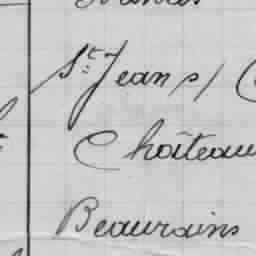 St Jean s/
Château
Beaurains